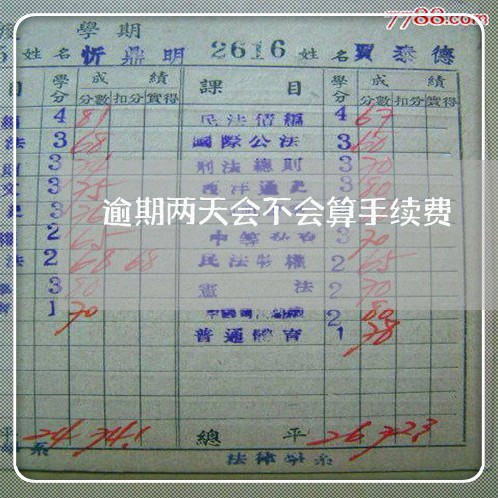 7788.com
學期
姓名 忻鼎明 2616 姓名 賈泰德
目 學分 成績 課目 學分 成績
分數 扣分 實得 分數 扣分 實得
4 81 民法債編 4 67
法 3 68 國際公法 3 60
3 刑法總則 3 70
文 3 75 西洋通史 3 80
逾期两天会不会算手续费
2 65 3 70
法 2 68 68 民法物權 2 65
3 80 憲法 2 70
1 70 2 80
普通體育 1 78
平 24 74.1 總平 26 72.3
系 法律學系